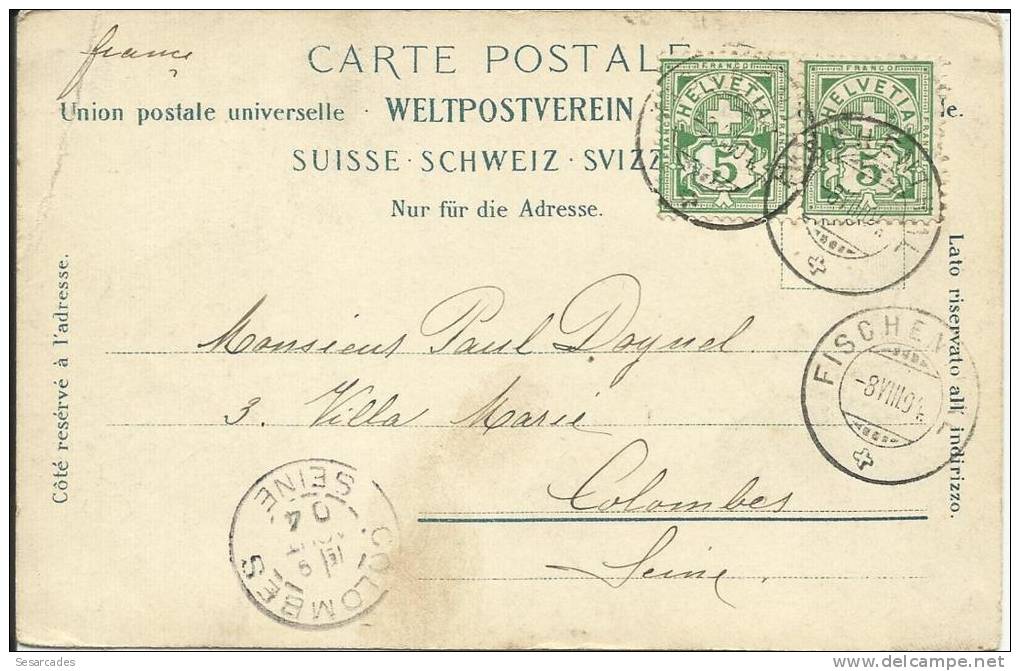 france
CARTE POSTALE
Union postale universelle · WELTPOSTVEREIN
SUISSE · SCHWEIZ · SVIZZ
Nur für die Adresse.
Côté resérvé à l'adresse.
Lato riservato all' indirizzo.
FRANCO
HELVETIA
5
FRANCO
HELVETIA
5
Monsieur Paul Doynel
3. Villa Marie
Colombes
Seine.
FISCHEN
-8 VIII 04
COLOMBES
SEINE
04
Sesarcades
delcampe.net